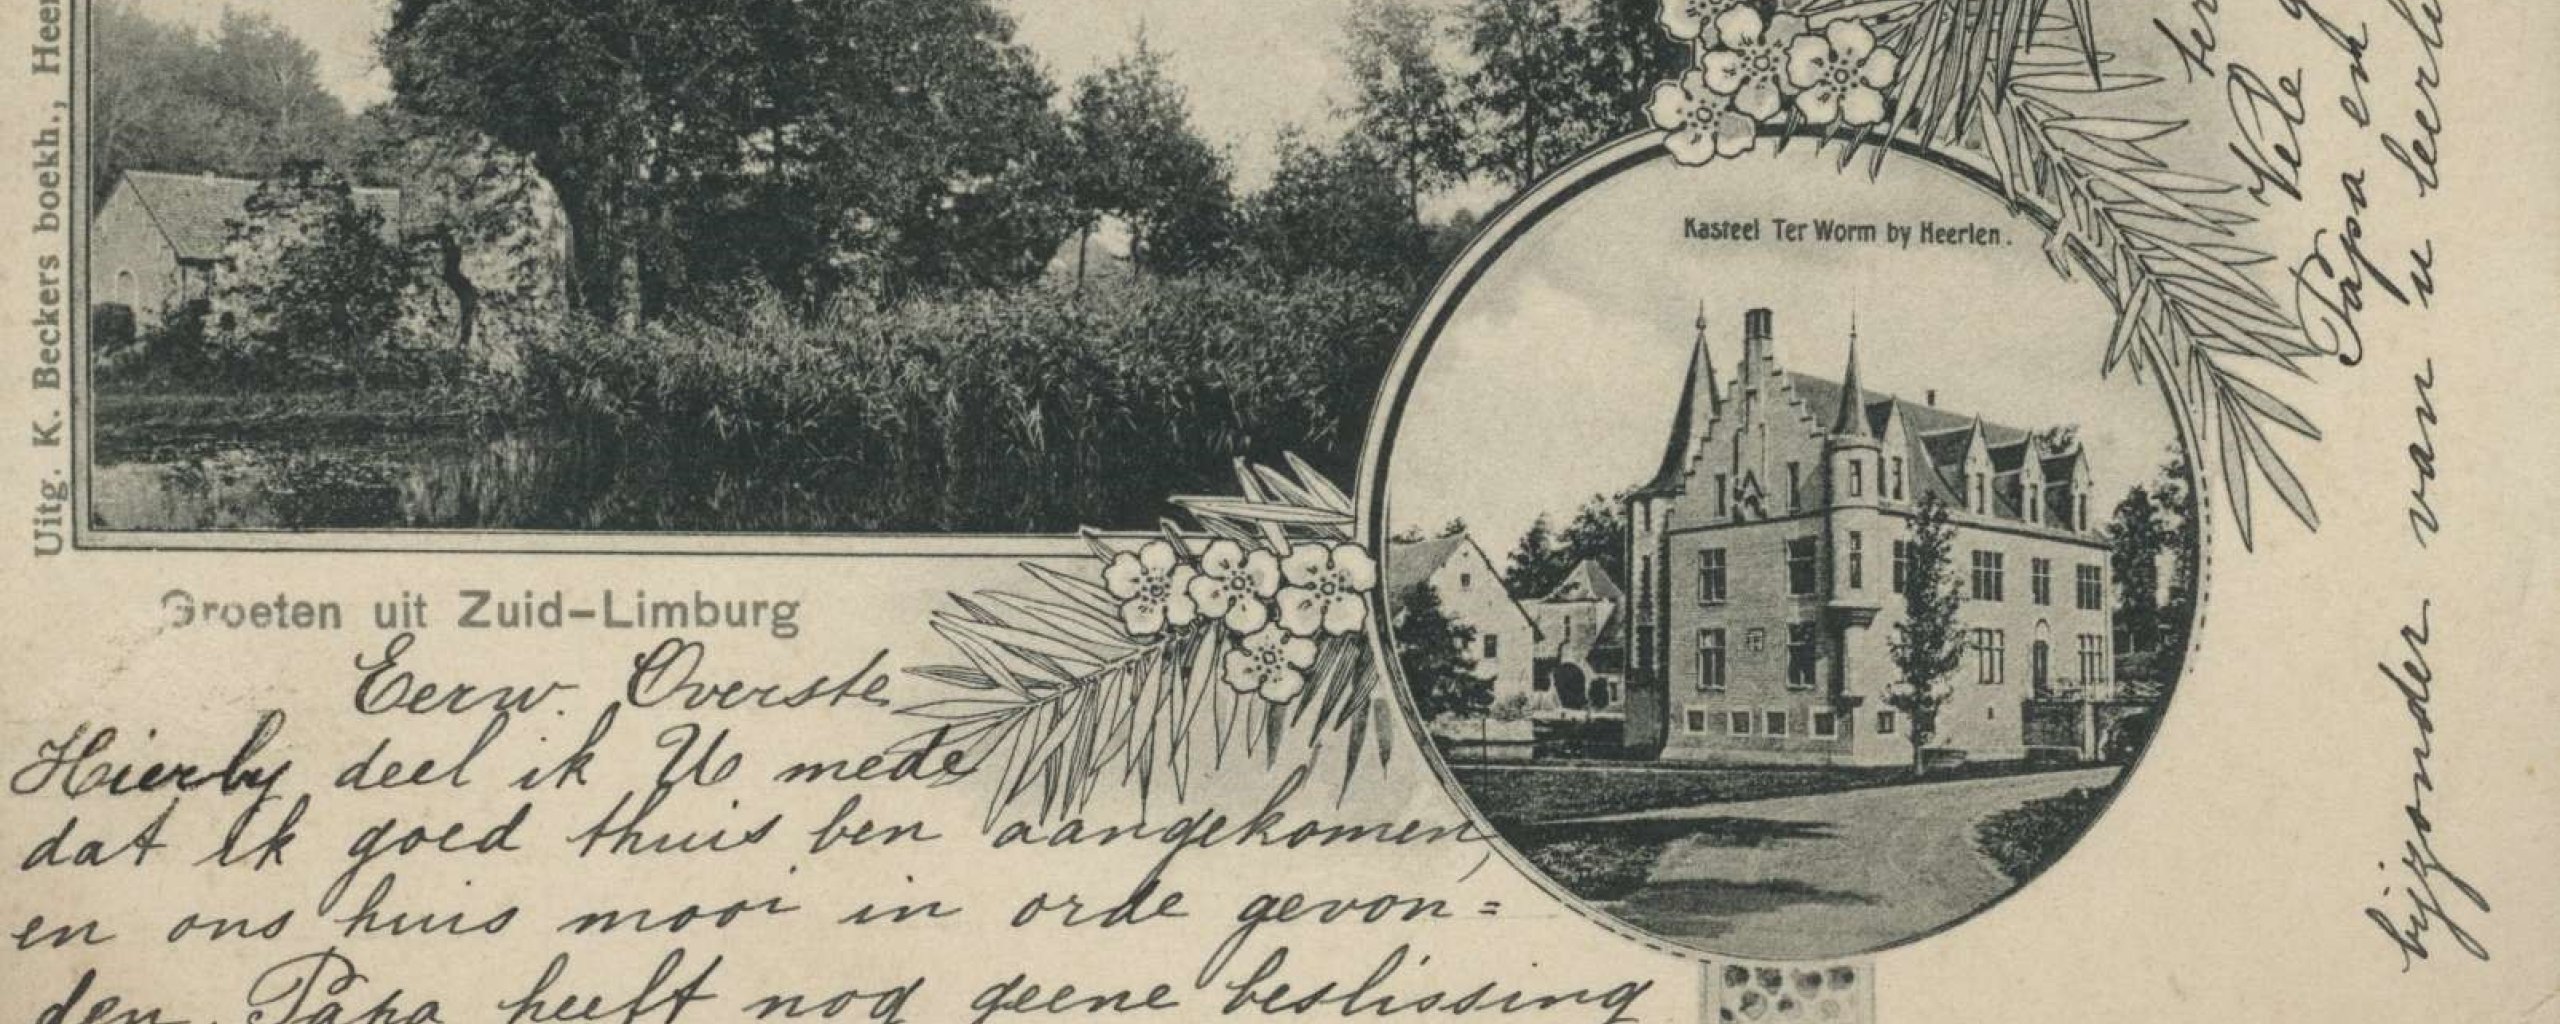 Uitg. K. Beckers boekh., Heer
Kasteel Ter Worm by Heerlen.
Groeten uit Zuid-Limburg
Eerw. Overste
Hierby deel ik U mede
dat ik goed thuis ben aangekomen,
en ons huis mooi in orde gevon=
den. Papa heeft nog geene beslissing
ter
Vele g
Papa en
bijzonder van u leerli